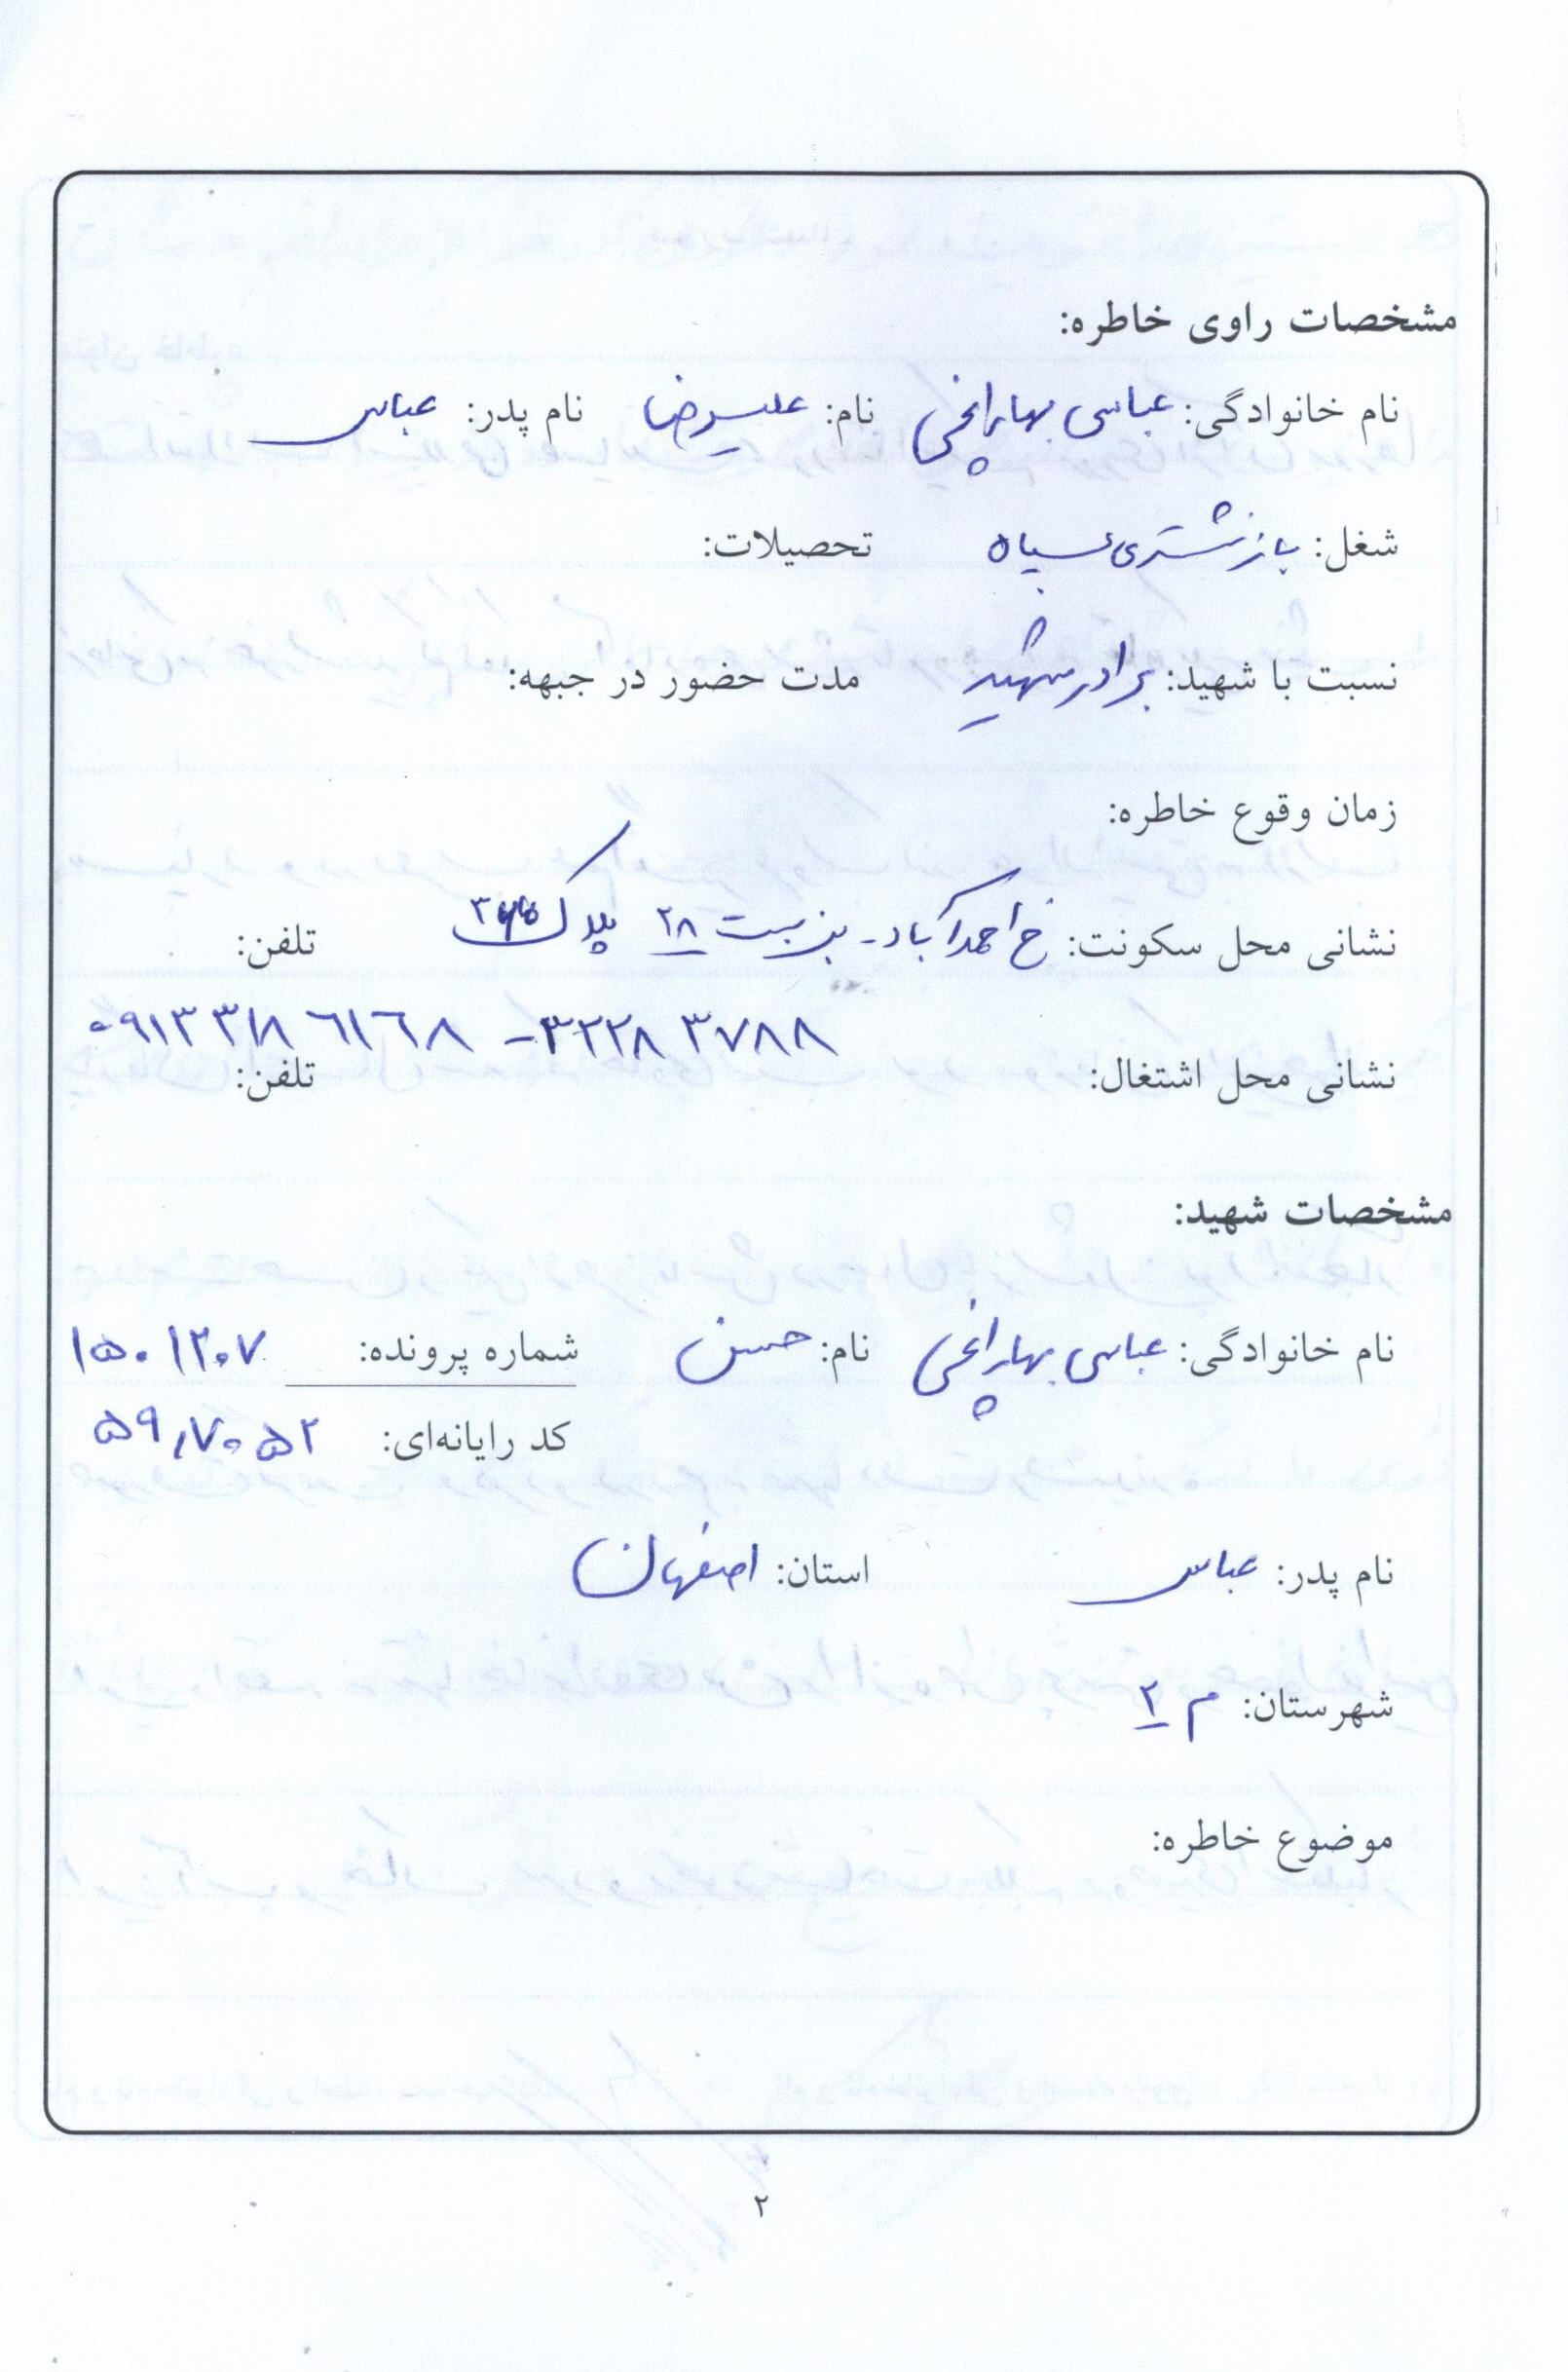 مشخصات راوی خاطره:
نام خانوادگی: عباسی بهارانچی نام: علیرضا نام پدر: عباس
شغل: بازنشستری سپاه تحصیلات:
نسبت با شهید: برادر شهید مدت حضور در جبهه:
زمان وقوع خاطره:
نشانی محل سکونت: خ احمدآباد - بن بست ۲۸ پلاک تلفن:
۰۹۱۳۳۱۸۶۱۶۸ - ۳۲۲۸۳۷۸۸
نشانی محل اشتغال: تلفن:
مشخصات شهید:
نام خانوادگی: عباسی بهارانچی نام: حسن شماره پرونده: ۱۵۰۱۲۰۷
کد رایانه‌ای: ۵۹۱۷۰۵۲
نام پدر: عباس استان: اصفهان
شهرستان: م ۲
موضوع خاطره:
۲